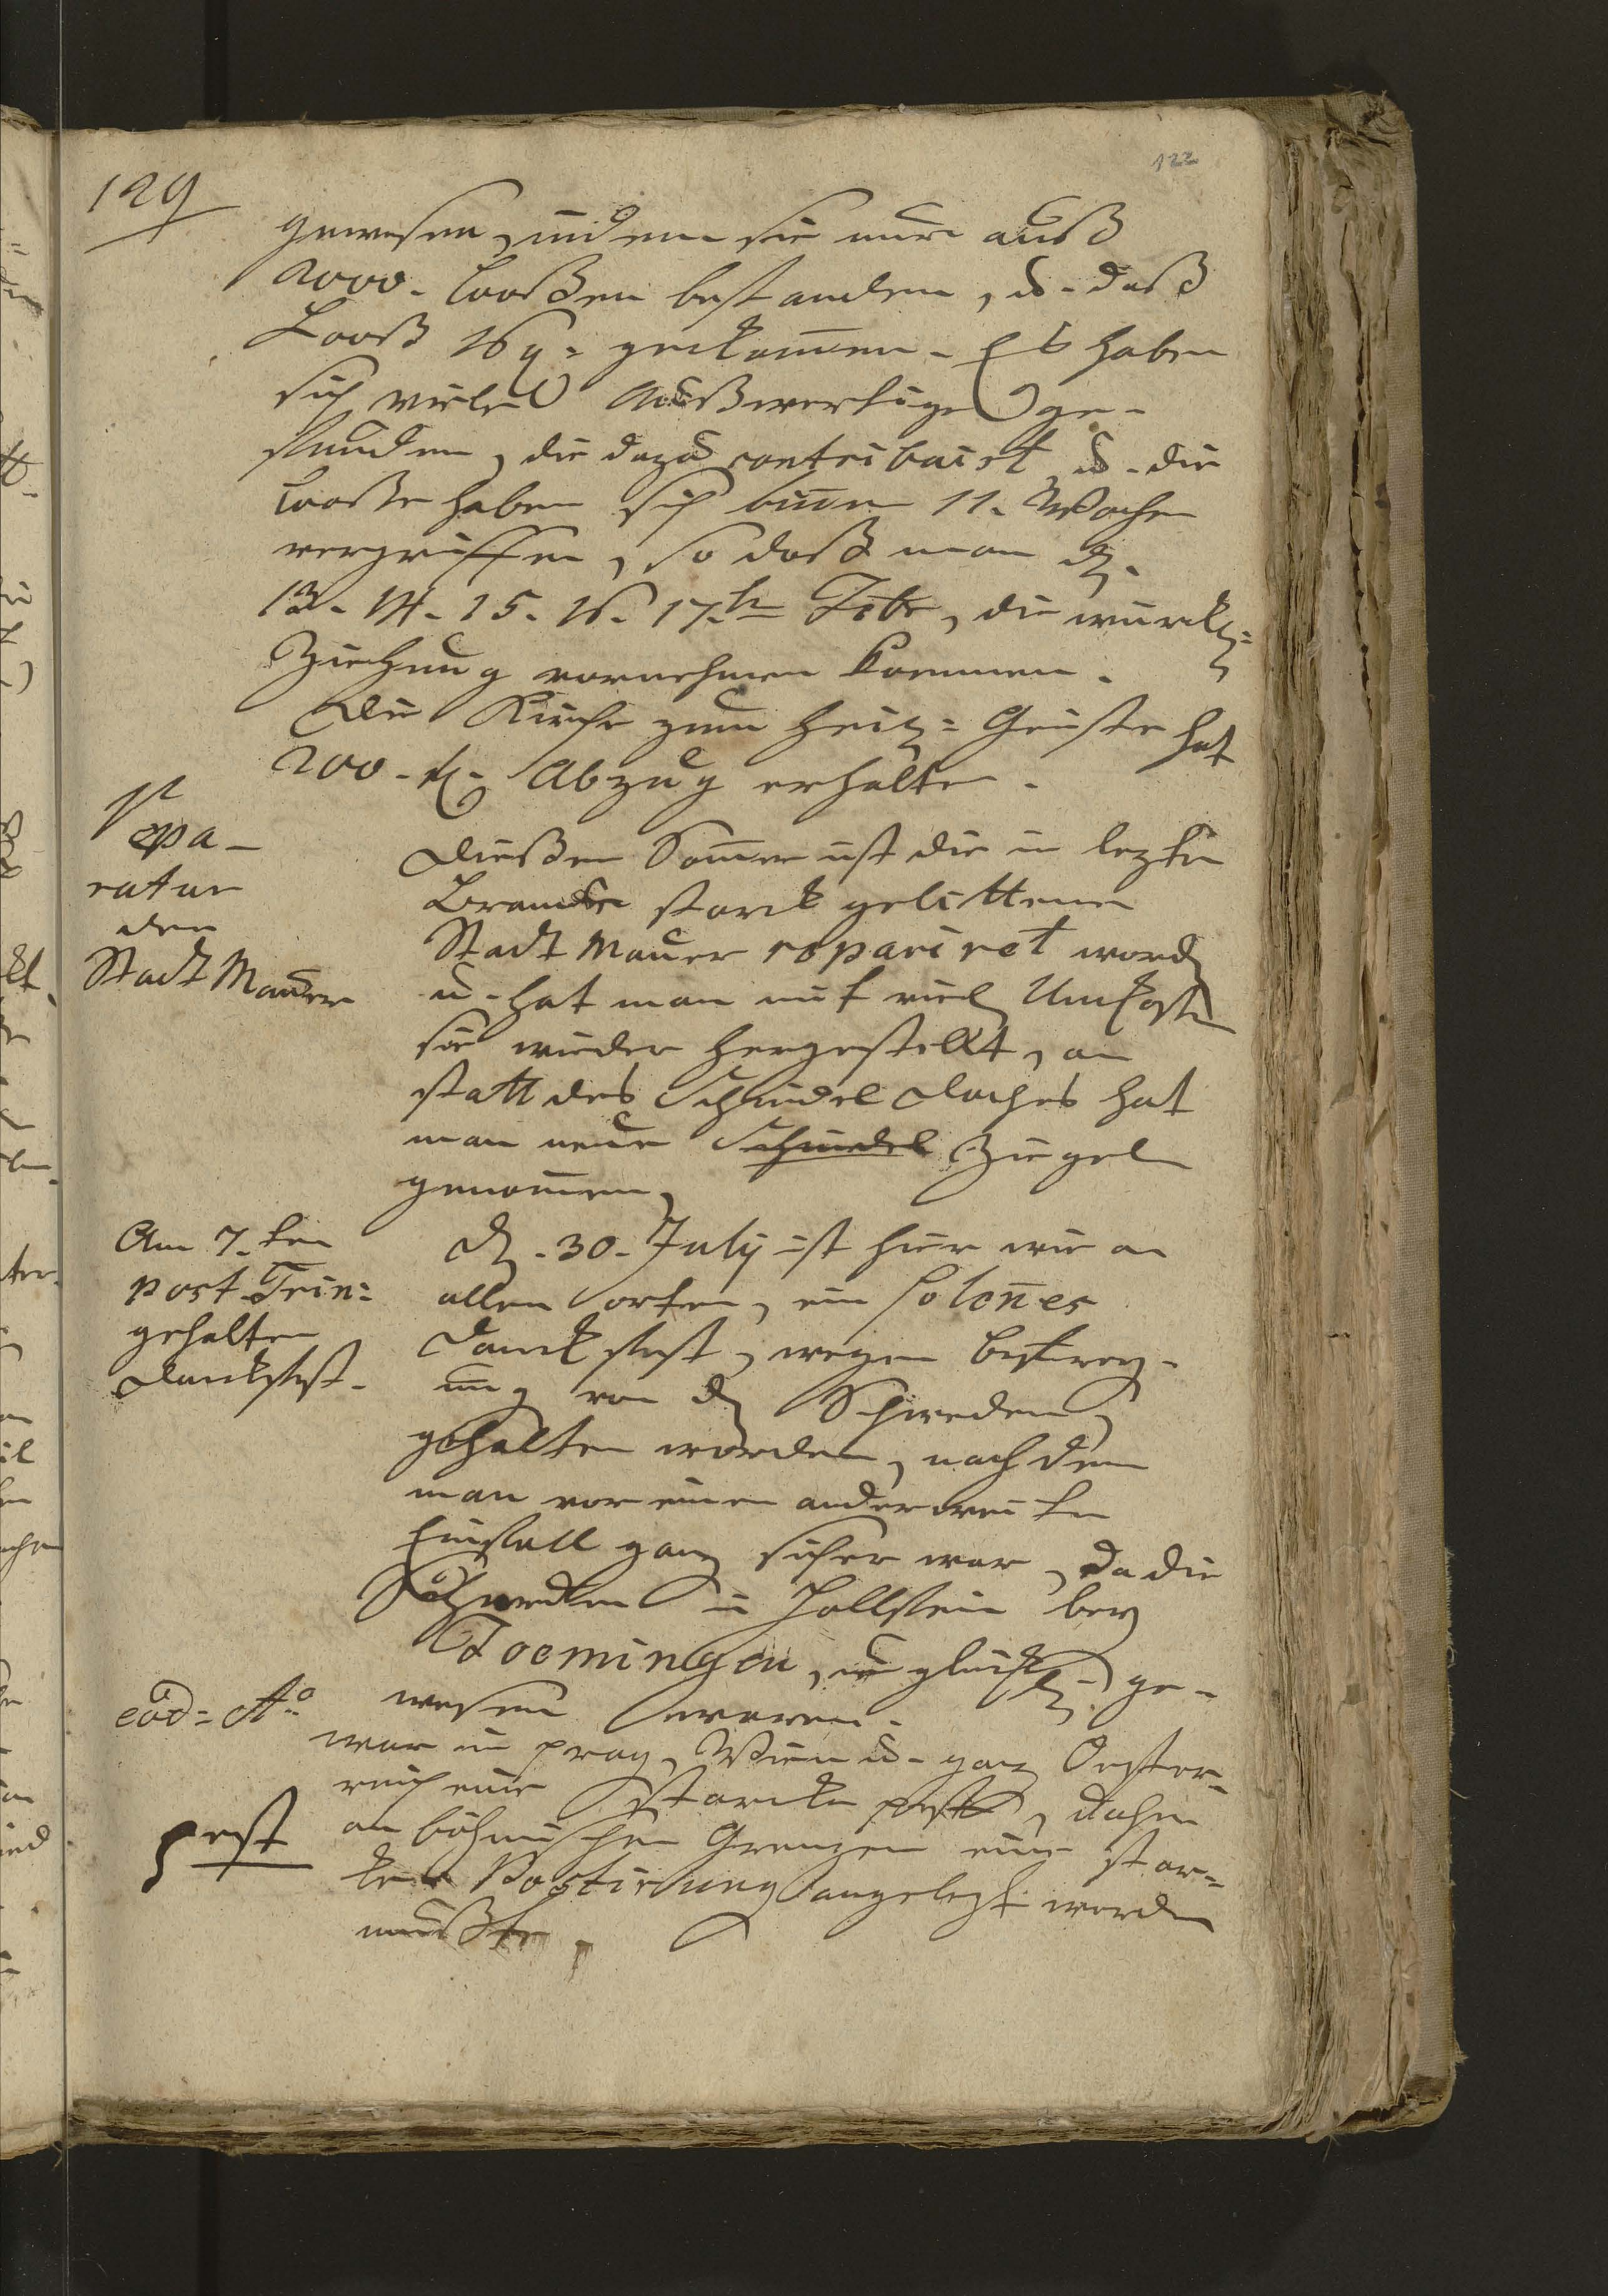 122
129
gewesen, indem sie nur auß
2000. Looßen bestanden, u. daß
Looß 16 g. gekom̄en. Es haben
sich viele Außwertige ge-
funden, die dazu contribuirt, u. die
Looße haben sich binnen 11. Wochen
vergriffen, so daß man d.
13. 14. 15. 16. 17. Febr, die
Ziehung vornehmen koennen.
Die Kirche zum heil: Geiste hat
200. fl. Abzug erhalten.
Repa-
ratur
der
Stadt Mauer
Dießen Som̄er ist die in lezten
Brande starck gelittene
Stadt Mauer repariret word
u. hat man mit viel Unkosten
sie wieder hergestellt, an
statt des Schindel Daches hat
man neue Schindel Ziegel
genom̄en,
Am 7. ten
post. Trin:
gehalten
Dankfest.
D. 30. July ist hier wie an
allen orten, ein solen̄es
Danckfest, wegen befrey-
ung von d Schweden,
gehalten worden, nach dem
man vor einen anderweiten
Einfall ganz sicher war, da die
Schweden in Hollstein bey
Toeningen, unglückl. ge-
wesen waren.
eod: Ao
war in prag, Wien u. ganz Oester-
reich eine starcke pest, daher
pest
an böhmischen Grenzen eine star-
ke Postirung angelegt werden
mußte,